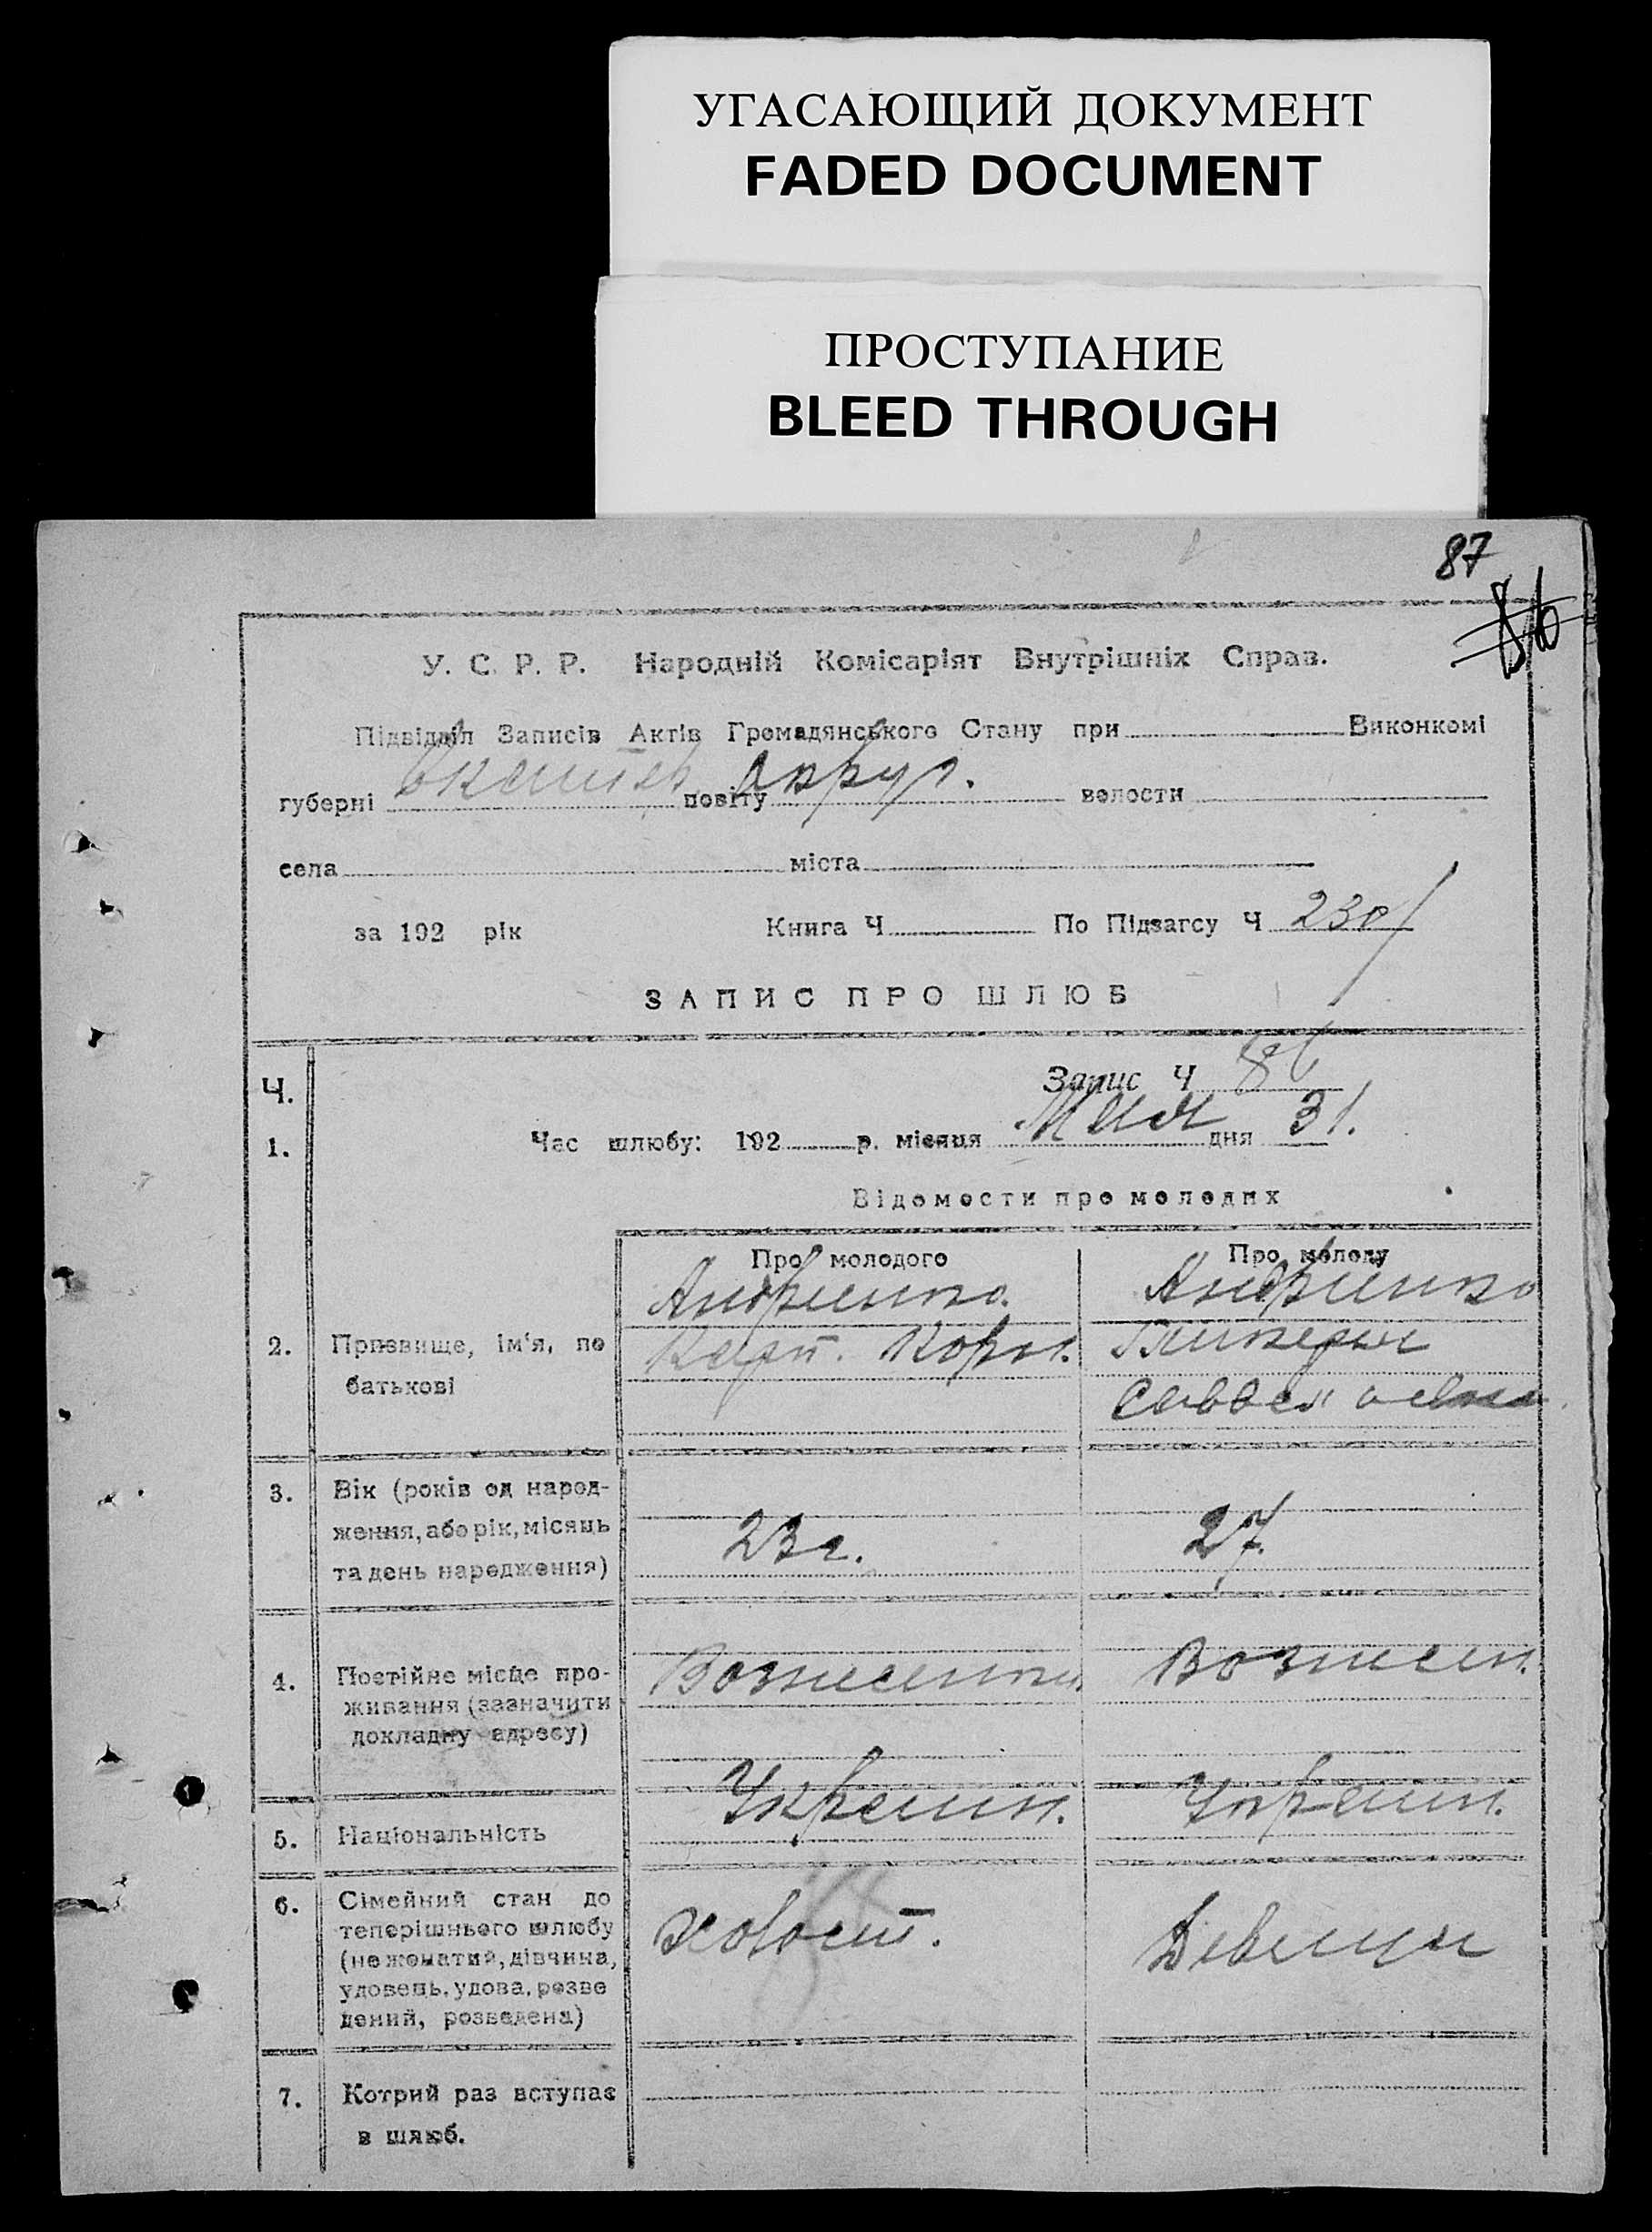 УГАСАЮЩИЙ ДОКУМЕНТ
FADED DOCUMENT
ПРОСТУПАНИЕ
BLEED THROUGH
87
У. С. Р. Р. Народній Комісаріят Внутрішніх Справ.
Підвідділ Записів Актів Громадянського Стану при Виконкомі
губерні повіту округ. волости
села міста
за 192 рік Книга Ч По Підзагсу Ч 230
ЗАПИС ПРО ШЛЮБ
Ч. Запис Ч 86
1. Час шлюбу: 192 р. місяця Мая дня 31.
Відомости про молодих
Про молодого Про молоду
Андриенко. Андриенко
2. Призвище, ім'я, по Карп. Корн. Гликерия
батькові
3. Вік (років од народ-
ження, або рік, місяць 23 г. 27.
та день народження)
4. Постійне місце про- Вознесенка Вознесен.
живання (зазначити
докладну адресу)
5. Національність Украин. Украин.
6. Сімейний стан до
теперішнього шлюбу холост. Девица
(не жонатий, дівчина,
удовець, удова, розве
дений, розведена)
7. Котрий раз вступає
в шлюб.